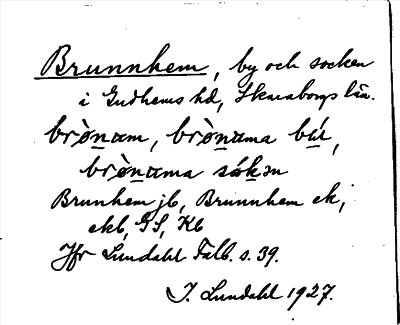 Brunnhem, by och socken
i Gudhems hd, Skaraborgs län.
brò̱nam, brò̱nama bú̱r,
brò̱nama sóḵən
Brunhem jb, Brunnhem ek;
ekb, GS, Kb
Jfr Lundahl Falb. s. 39.
I. Lundahl 1927.